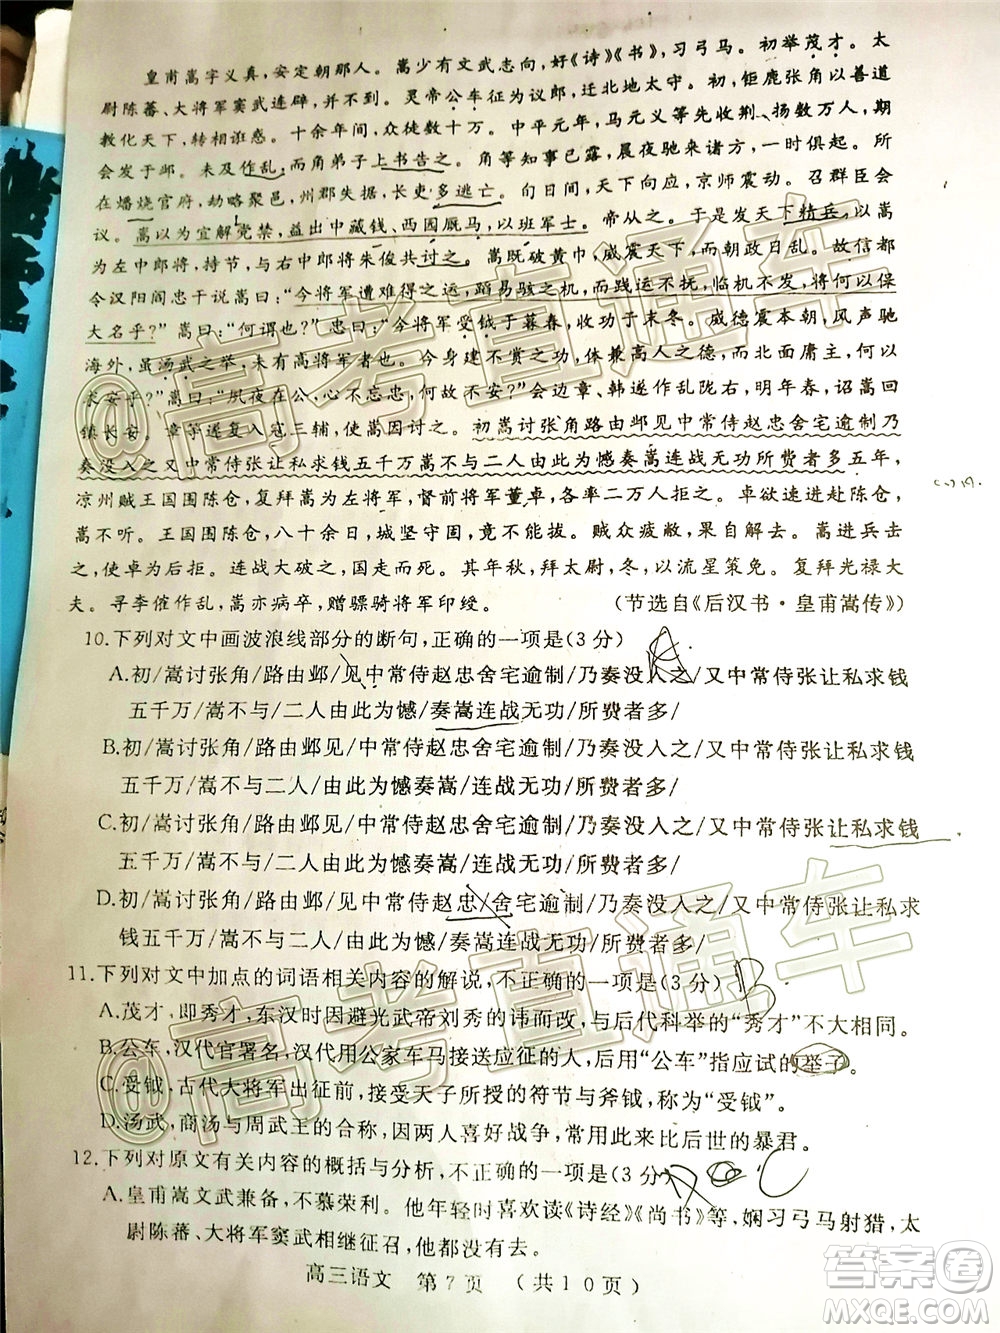 皇甫嵩字义真，安定朝那人。嵩少有文武志向，好《诗》《书》，习弓马。初举茂才。太
尉陈蕃、大将军窦武连辟，并不到。灵帝公车征为议郎，迁北地太守。初，钜鹿张角以善道
教化天下，转相诳惑。十余年间，众徒数十万。中平元年，马元义等先收荆、扬数万人，期
会发于邺。未及作乱，而角弟子上书告之。角等知事已露，晨夜驰来诸方，一时俱起。所
在燔烧官府，劫略聚邑，州郡失据，长吏多逃亡。旬日间，天下向应，京师震动。召群臣会
议。嵩以为宜解党禁，益出中藏钱，西园厩马，以班军士。帝从之。于是发天下精兵，以嵩
为左中郎将，持节，与右中郎将朱俊共讨之。嵩既破黄巾，威震天下，而朝政日乱。故信都
令汉阳阎忠干说嵩曰：“今将军遭难得之运，蹈易骇之机，而践运不抚，临机不发，将何以保
大名乎？”嵩曰：“何谓也？”忠曰：“今将军受钺于暮春，收功于末冬。威德震本朝，风声驰
海外，虽汤武之举，未有高将军者。今身建不赏之功，体兼高人之德，而北面庸主，何以
求安乎？”嵩曰：“夙夜在公，心不忘忠，何故不安？”会边章、韩遂作乱陇右，明年春，诏嵩
镇长安。章等遂复入寇三辅，使嵩因讨之。初嵩讨张角路由邺见中常侍赵忠舍宅逾制乃
奏没入之又中常侍张让私求钱五千万嵩不与二人由此为憾奏嵩连战无功所费者多五年，
凉州贼王国围陈仓，复拜嵩为左将军，督前将军董卓，各率二万人拒之。卓欲速进赴陈仓，
嵩不听。王国围陈仓，八十余日，城坚守固，竟不能拔。贼众疲敝，果自解去。嵩进兵击
之，使卓为后拒。连战大破之，国走而死。其年秋，拜太尉，冬，以流星策免。复拜光禄大
夫。寻李傕作乱，嵩亦病卒，赠骠骑将军印绶。　（节选自《后汉书·皇甫嵩传》）
10.下列对文中画波浪线部分的断句，正确的一项是(3分)
A.初/嵩讨张角/路由邺/见中常侍赵忠舍宅逾制/乃奏没入之/又中常侍张让私求钱
五千万/嵩不与/二人由此为憾/奏嵩连战无功/所费者多/
B.初/嵩讨张角/路由邺见/中常侍赵忠舍宅逾制/乃奏没入之/又中常侍张让私求钱
五千万/嵩不与/二人由此为憾奏嵩/连战无功/所费者多/
C.初/嵩讨张角/路由邺见/中常侍赵忠舍宅逾制/乃奏没入之/又中常侍张让私求钱
五千万/嵩不与/二人由此为憾奏嵩/连战无功/所费者多/
D.初/嵩讨张角/路由邺/见中常侍赵忠/舍宅逾制/乃奏没入之/又中常侍张让私求
钱五千万/嵩不与/二人由此为憾/奏嵩连战无功/所费者多/
11.下列对文中加点的词语相关内容的解说，不正确的一项是(3分) B
A.茂才，即秀才，东汉时因避光武帝刘秀的讳而改，与后代科举的“秀才”不大相同。
B.公车，汉代官署名，因汉代用公家车马接送应征的人，后用“公车”指应试的举子。
C.受钺，古代大将军出征前，接受天子所授的符节与斧钺，称为“受钺”。
D.汤武，商汤与周武王的合称，因两人喜好战争，常用来比后世的暴君。
12.下列对原文有关内容的概括与分析，不正确的一项是(3分) C
A.皇甫嵩文武兼备，不慕荣利。他年轻时喜欢读《诗经》《尚书》等，娴习弓马射猎，太
尉陈蕃、大将军窦武相继征召，他都没有去。
高三语文　第7页　（共10页）
@高考直通车
@高考直通车
答案圈
MXQE.COM